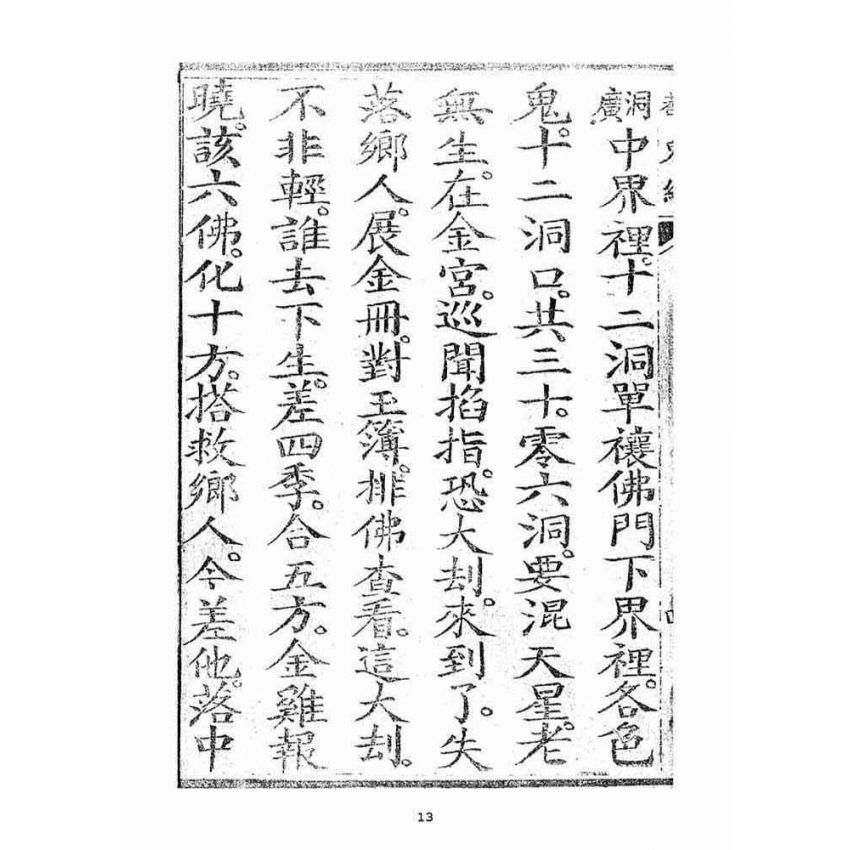 洞廣中界裡。十二洞單禳佛門下界裡。各色
鬼。十二洞口。共三十。零六洞。要混天星。老
無生。在金宮。巡聞掐指。恐大刦。來到了。失
落鄉人。展金冊。對玉簿。排佛查看。這大刦。
不非輕。誰去下生。差四季。合五方。金雞報
曉。該六佛。化十方。搭救鄉人。今差他。落中
13